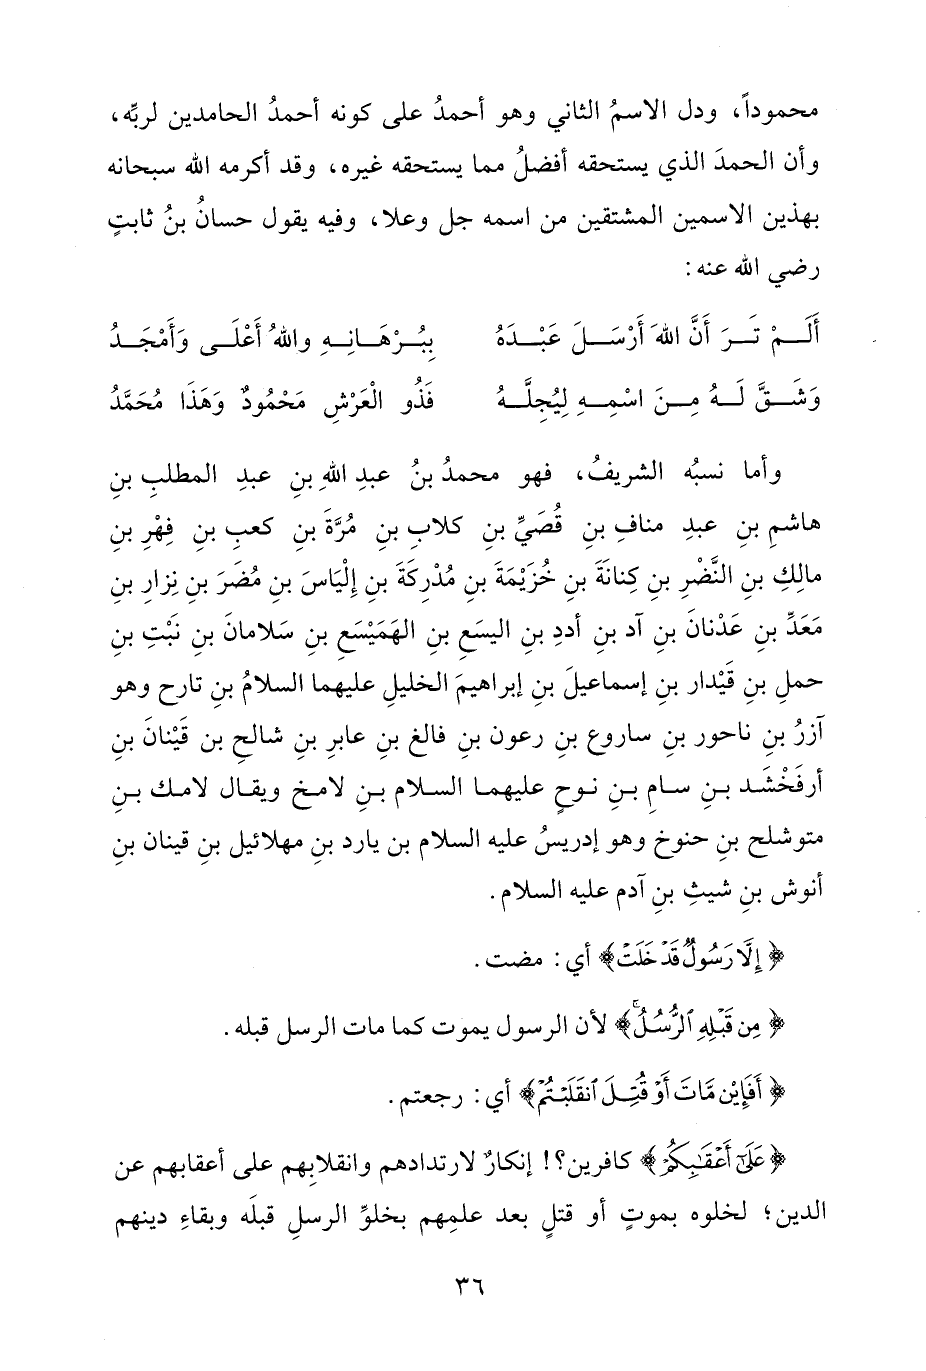 محموداً، ودل الاسمُ الثاني وهو أحمدُ على كونه أحمدُ الحامدين لربِّه،
وأن الحمدَ الذي يستحقه أفضلُ مما يستحقه غيره، وقد أكرمه الله سبحانه
بهذين الاسمين المشتقين من اسمه جل وعلا، وفيه يقول حسانُ بنُ ثابتٍ
رضي الله عنه:
أَلَـمْ تَـرَ أَنَّ اللهَ أَرْسَـلَ عَبْـدَهُ بِبُـرْهَـانِـهِ واللهُ أَعْلَـى وَأَمْجَـدُ
وَشَـقَّ لَـهُ مِـنَ اسْمِـهِ لِيُجِلَّـهُ فَذُو الْعَرْشِ مَحْمُودٌ وَهَذَا مُحَمَّدُ
وأما نسبُه الشريفُ، فهو محمدُ بنُ عبدِ اللهِ بنِ عبدِ المطلبِ بنِ
هاشمِ بنِ عبدِ منافِ بنِ قُصَيِّ بنِ كلابِ بنِ مُرَّةَ بنِ كعبِ بنِ فِهْرِ بنِ
مالِكِ بنِ النَّضْرِ بنِ كِنانَةَ بنِ خُزَيْمَةَ بنِ مُدْرِكَةَ بنِ إِلْيَاسَ بنِ مُضَرَ بنِ نِزارِ بنِ
مَعَدِّ بنِ عَدْنانَ بنِ آد بنِ أددِ بنِ اليسَعِ بنِ الهَمَيْسَعِ بنِ سَلامانَ بنِ نَبْتِ بنِ
حملِ بنِ قَيْدارِ بنِ إسماعيلَ بنِ إبراهيمَ الخليلِ عليهما السلامُ بنِ تارح وهو
آزرُ بنِ ناحور بنِ ساروع بنِ رعون بنِ فالغ بنِ عابرِ بنِ شالحِ بنِ قَيْنانَ بنِ
أرفَخْشَـد بـنِ سـامِ بـنِ نـوحٍ عليهمـا السـلام بـنِ لامـخ ويقـال لامـك بـنِ
متوشلح بنِ حنوخ وهو إدريسُ عليه السلام بن يارد بنِ مهلائيل بنِ قينان بنِ
أنوش بنِ شيثِ بنِ آدم عليه السلام.
﴿إِلَّا رَسُولٌ قَدْ خَلَتْ﴾ أي: مضت.
﴿مِن قَبْلِهِ ٱلرُّسُلُ ۚ﴾ لأن الرسول يموت كما مات الرسل قبله.
﴿أَفَإِيْن مَّاتَ أَوْ قُتِـلَ ٱنقَلَبْتُمْ﴾ أي: رجعتم.
﴿عَلَىٰٓ أَعْقَـٰبِكُمْ﴾ كافرين؟! إنكارٌ لارتدادهم وانقلابِهم على أعقابهم عن
الدين؛ لخلوه بموتٍ أو قتلٍ بعد علمِهم بخلوِّ الرسلِ قبلَه وبقاءِ دينهم
٣٦